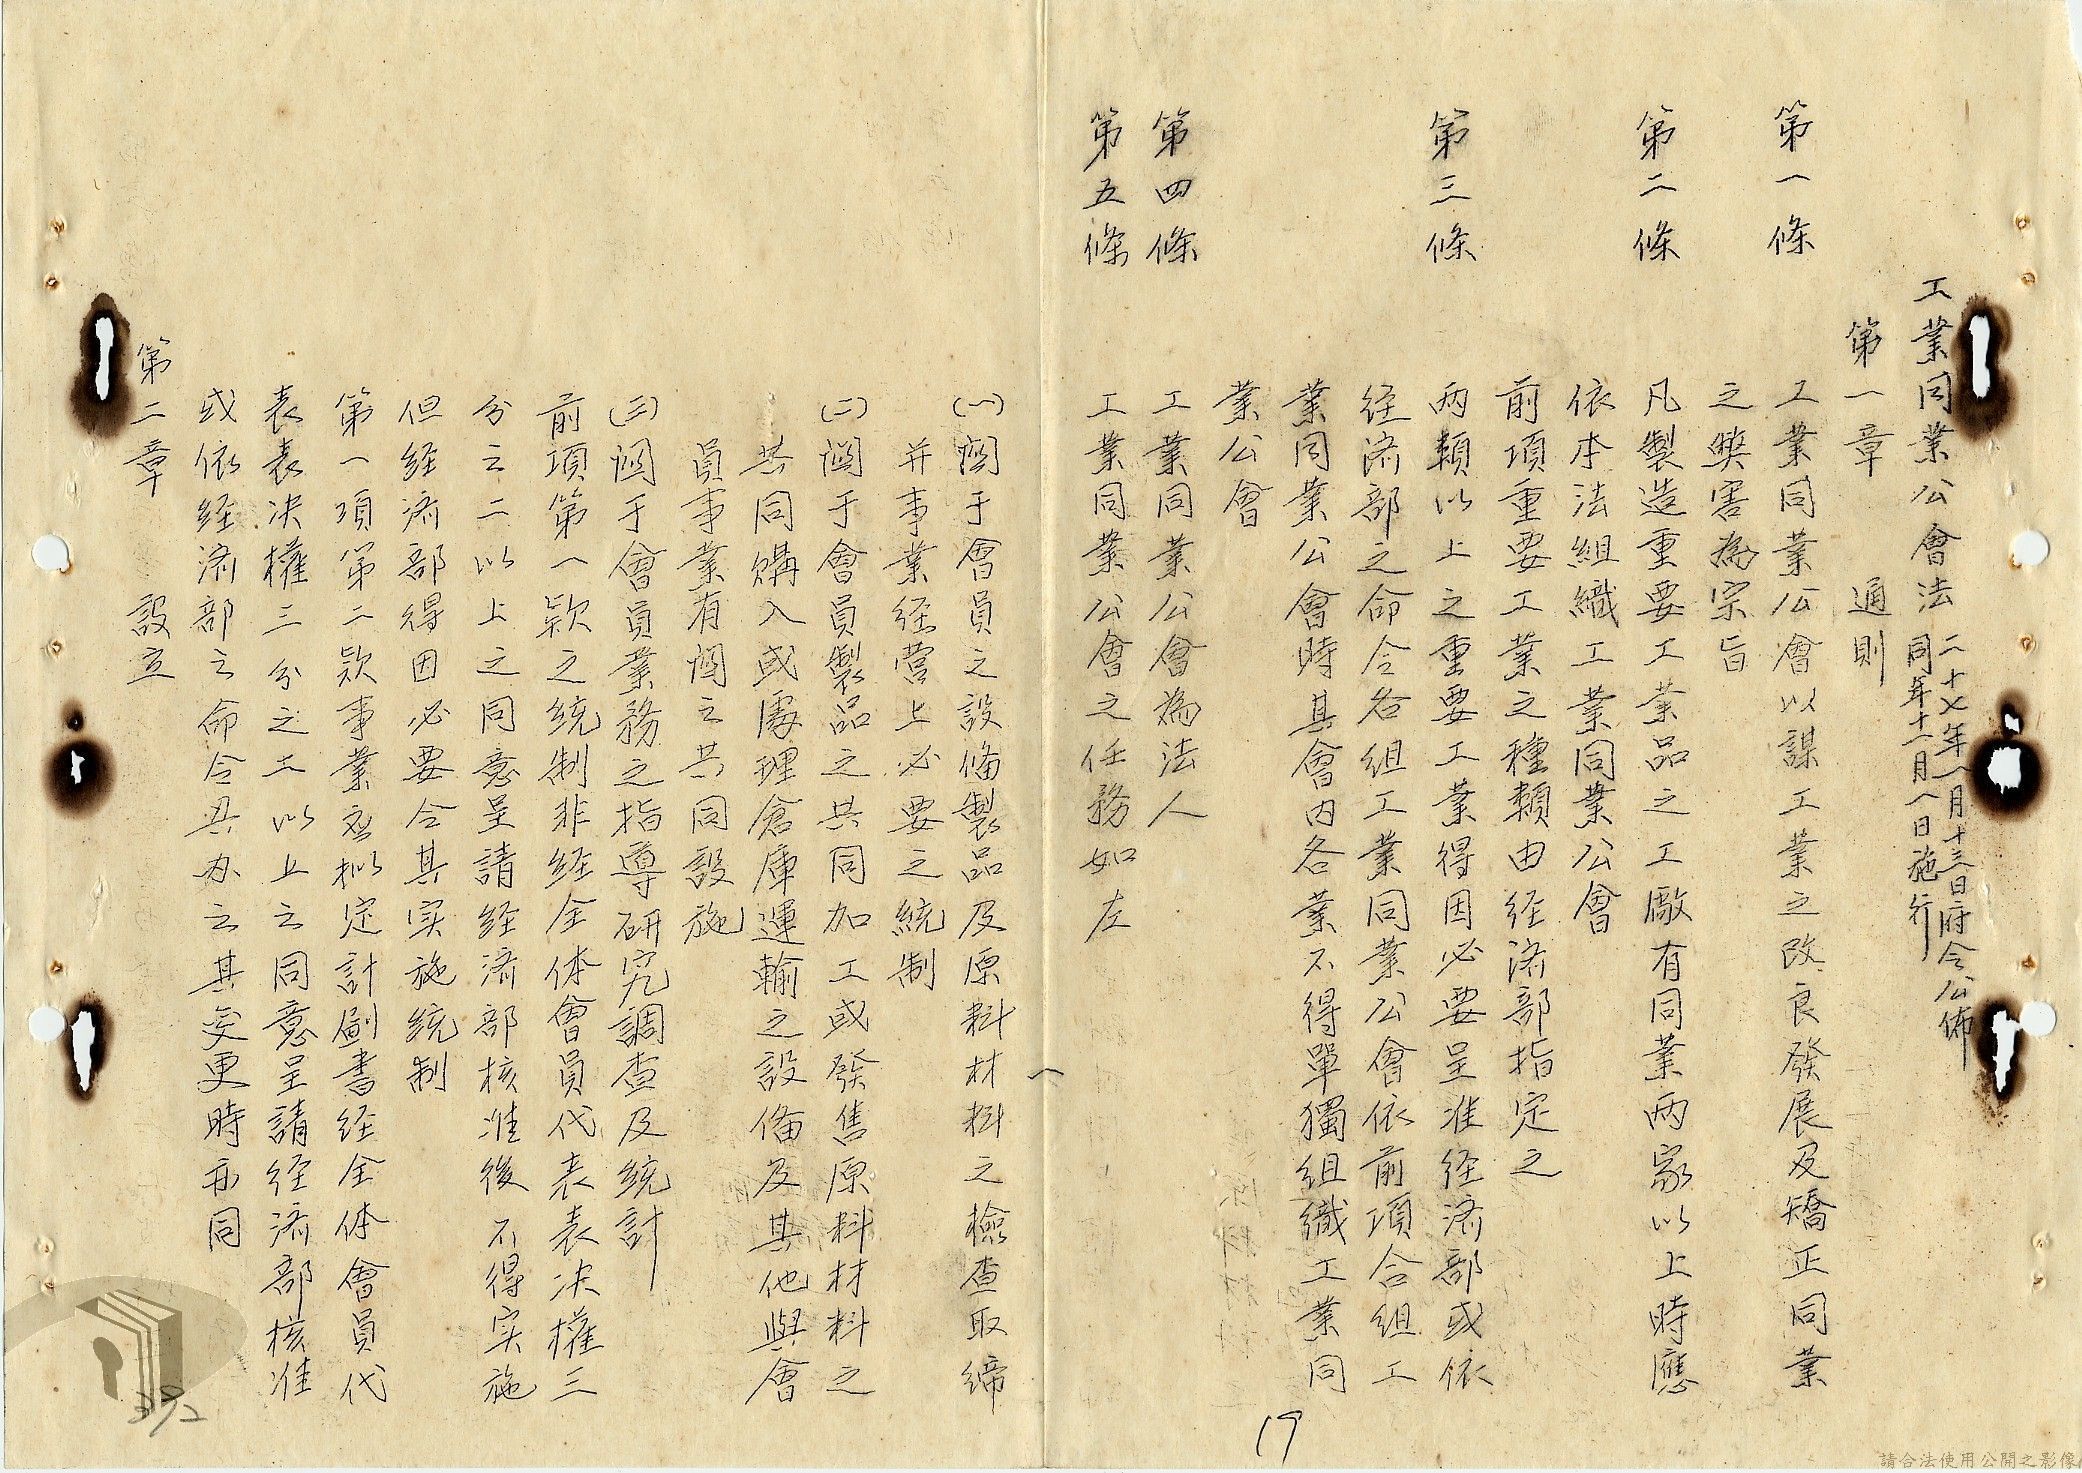 工業同業公會法
二十七年一月十三日府令公佈
同年十一月一日施行
第一章　通則
第一條　工業同業公會以謀工業之改良發展及矯正同業
之獘害為宗旨
第二條　凡製造重要工業品之工廠有同業两家以上時應
依本法組織工業同業公會
前項重要工業之種類由経済部指定之
第三條　两類以上之重要工業得因必要呈准経済部或依
経済部之命令各组工業同業公會依前項合組工
業同業公會時其會内各業不得單獨組織工業同
業公會
第四條　工業同業公會為法人
第五條　工業同業公會之任務如左
(一)関于會員之設俻製品及原料材料之檢查取締
并事業経营上必要之統制
(二)関于會員製品之共同加工或發售原料材料之
共同購入或處理倉庫運輸之設俻及其他與會
員事業有関之共同設施
(三)関于會員業務之指導研究調查及統計
前項第一欵之統制非経全体會員代表表决權三
分之二以上之同意呈請経済部核准後不得实施
但経済部得因必要令其实施統制
第一項第二欵事業应拟定計劃書経全体會員代
表表决權三分之二以上之同意呈請経済部核准
或依経済部之命令其办之其变更時亦同
第二章　設立
一
19
392
請合法使用公開之影像